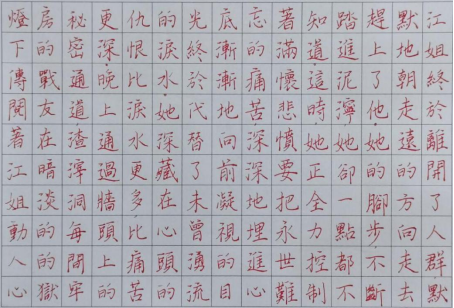 江姐終於離開了人群默
默地朝走遠的方向走去
趕上了他她的腳步不斷
踏進泥濘她卻一點都不
知道這時她正全力控制
著滿懷悲憤要把永世難
忘的痛苦深深地埋進心
底漸漸地向前凝視的目
光終於代替了未曾湧流
的淚水她深藏在心頭的
仇恨比淚水更多比痛苦
更深晚上通過牆頭上的
秘密通道渣滓洞每間牢
房的戰友在暗淡的的獄
燈下傳閱著江姐動人心